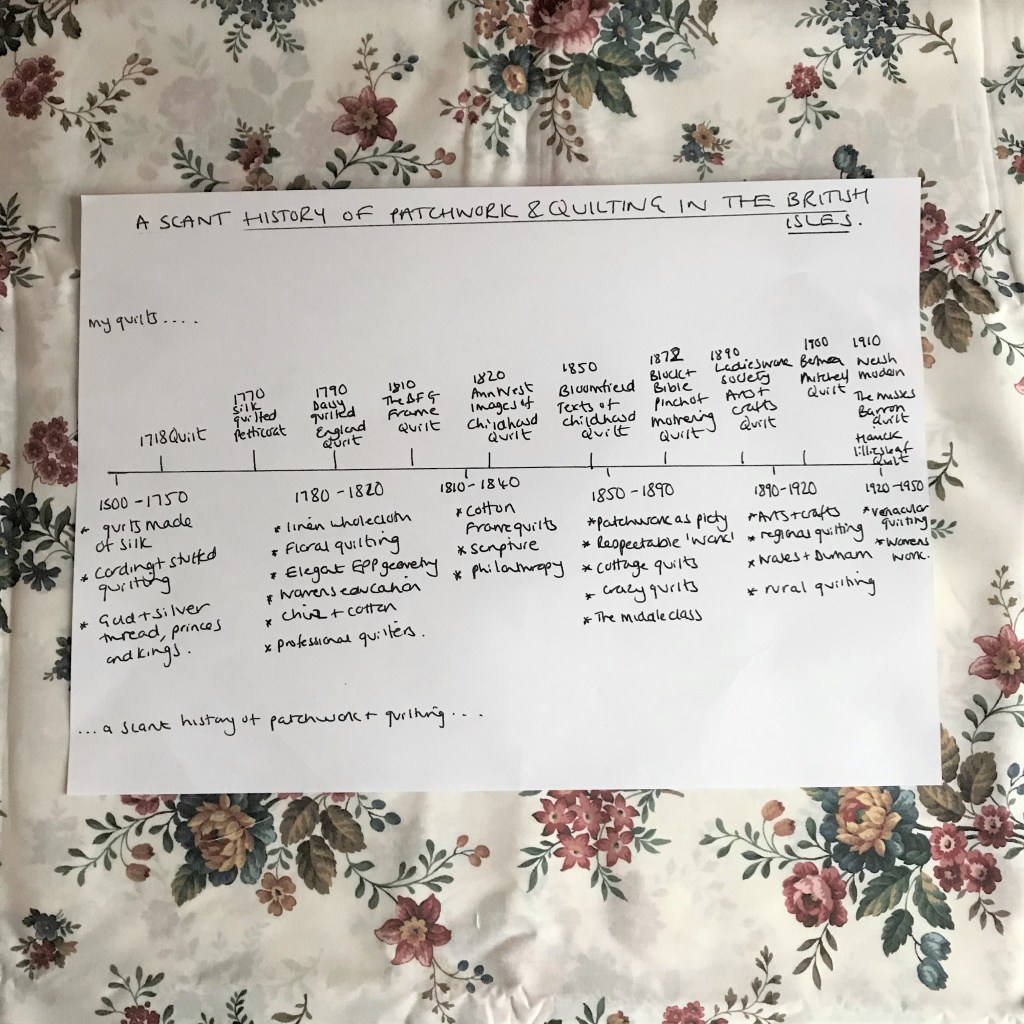 A SCANT HISTORY OF PATCHWORK & QUILTING IN THE BRITISH
ISLES.
my quilts....
1718 Quilt
1770
Silk
quilted
Petticoat
1790
Daisy
quilted
England
Quilt
1810
The BFG
Frame
Quilt
1820
Ann West
Images of
Childhood
Quilt
1850
Bloomfield
Texts of
childhood
Quilt
1872
Block+
Bible
Pinch of
mothering
Quilt
1890
Ladies work
Society
Arts+
crafts
Quilt
1900
Mitchell
Quilt
1910
Welsh
modern
The misses
Barron
Quilt
+
Lilliesleaf
Quilt
1500-1750
* quilts made
of silk
* Cording+stuffed
quilting
* Gold+silver
thread, princes
and kings.
1780-1820
* linen wholecloth
* Floral quilting
* Elegant EPP geometry
* womens education
* Chinz + cotton
* professional quilters.
1810-1840
* Cotton
Frame quilts
* scripture
* philanthropy
1850-1890
* patchwork as piety
* Respectable 'work'
* cottage quilts
* crazy quilts
* The middle class
1890-1920
* Arts+crafts
* regional quilting
* Wales + Durham
* rural quilting
1920-1950
* vernacular
quilting
* Womens
work.
...a scant history of patchwork + quilting...